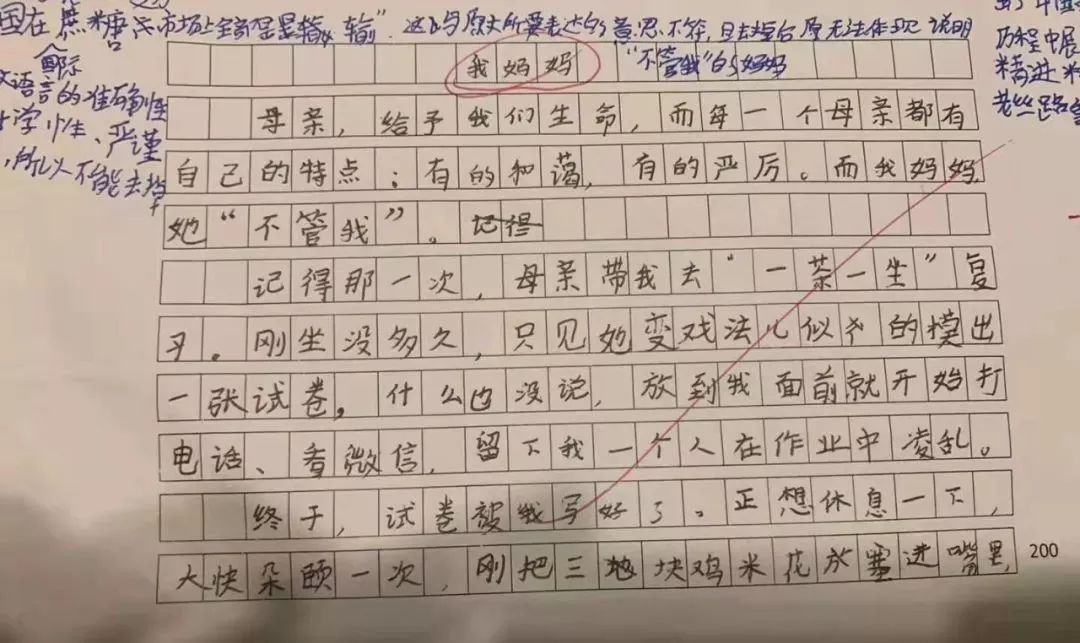 国在蔗糖
市场上全部是是输入、输”，这与原文所要表达的意思不符，且去掉后原无法体现说明
文语言的准确性
学性、严谨
，所以不能去掉
历程中展
精进
老丝路
我妈妈
“不管我”的妈妈
母亲，给予我们生命，而每一个母亲都有
自己的特点；有的和蔼，有的严厉。而我妈妈，
她“不管我”。记得
记得那一次，母亲带我去“一茶一生”复
习。刚坐没多久，只见她变戏法儿似的模出
一张试卷，什么也没说，放到我面前就开始打
电话、看微信，留下我一个人在作业中凌乱。
终于，试卷被我写好了。正想休息一下，
大快朵颐一次，刚把三块鸡米花放塞进嘴里，
200